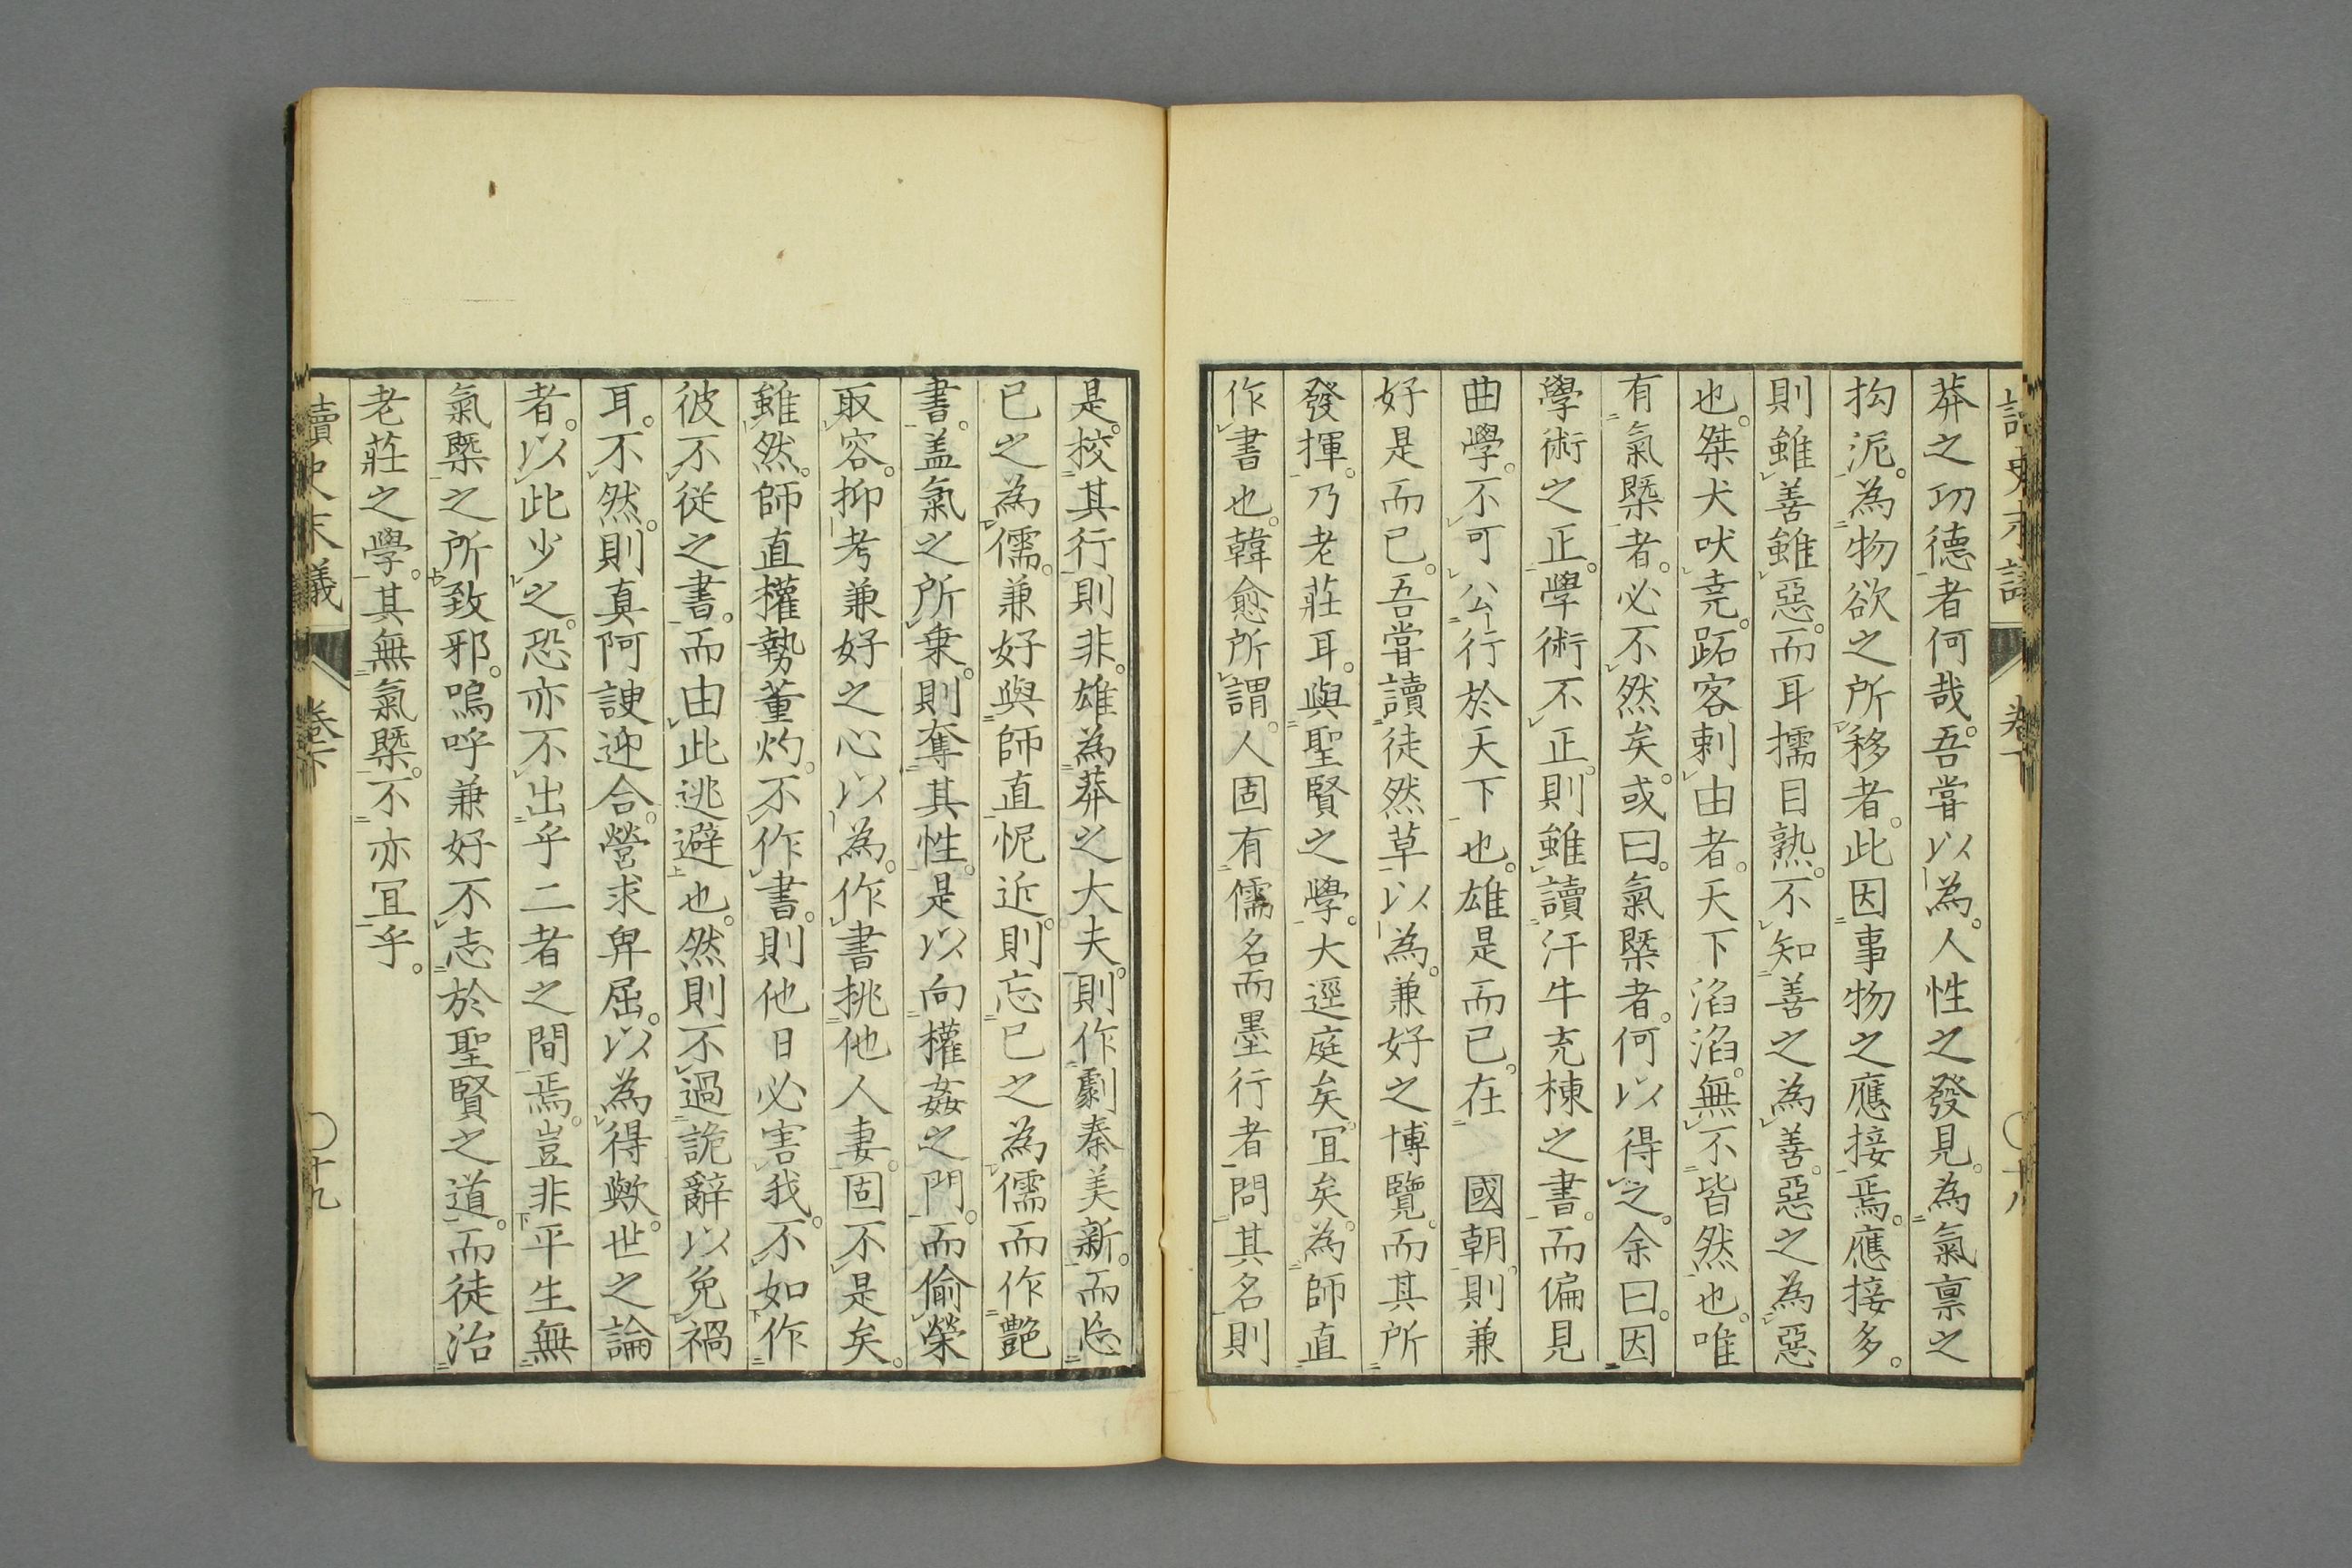 莽之功德者何哉。吾嘗以為。人性之發見。為氣禀之
拘泥。為物欲之所移者。此因事物之應接焉。應接多。
則雖善雖惡。而耳擩目熟。不知善之為善。惡之為惡
也。桀犬吠堯。跖客刺由者。天下滔滔。無不皆然也。唯
有氣槩者。必不然矣。或曰。氣槩者。何以得之。余曰。因
學術之正。學術不正。則雖讀汗牛充棟之書。而偏見
曲學。不可公行於天下也。雄是而已。在　國朝。則兼
好是而已。吾嘗讀徒然草以為。兼好之博覽。而其所
發揮。乃老莊耳。與聖賢之學。大逕庭矣。宜矣。為師直
作書也。韓愈所謂。人固有儒名而墨行者。問其名則
是。挍其行則非。雄為莽之大夫。則作劇秦美新。而忘
已之為儒。兼好與師直怩近。則忘已之為儒而作艶
書。盖氣之所乗。則奪其性。是以向權姦之門。而偷榮
取容。抑考兼好之心以為。作書挑他人妻。固不是矣。
雖然。師直權勢薫灼。不作書。則他日必害我。不如作
彼不従之書。而由此逃避也。然則不過詭辭以免禍
耳。不然。則真阿諛迎合。營求卑屈。以為得歟。世之論
者。以此少之。恐亦不出乎二者之間焉。豈非平生無
氣槩之所致邪。嗚呼兼好不志於聖賢之道。而徒治
老莊之學。其無氣槩。不亦宜乎。
讀史末議　卷下　〇十九